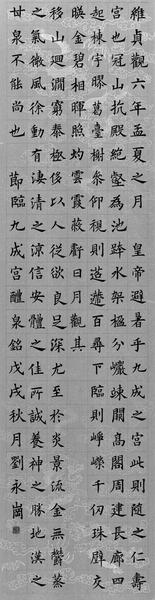 維貞觀六年孟夏之月 皇帝避暑乎九成之宮此則隨之仁壽
宮也冠山抗殿絕壑為池跨水架楹分巖竦闕高閣周建長廊四
起棟宇膠葛臺榭參差仰視則迢遰百尋下臨則崢嶸千仞珠璧交
暎金碧相暉照灼雲霞蔽虧日月觀其
移山迴澗窮泰極侈以人從欲良足深尤至於炎景流金無鬱蒸
之氣微風徐動有淒清之涼信安體之佳所誠養神之勝地漢之
甘泉不能尚也 節臨九成宮醴泉銘戊戌秋月劉永崗